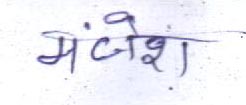 मंजेश